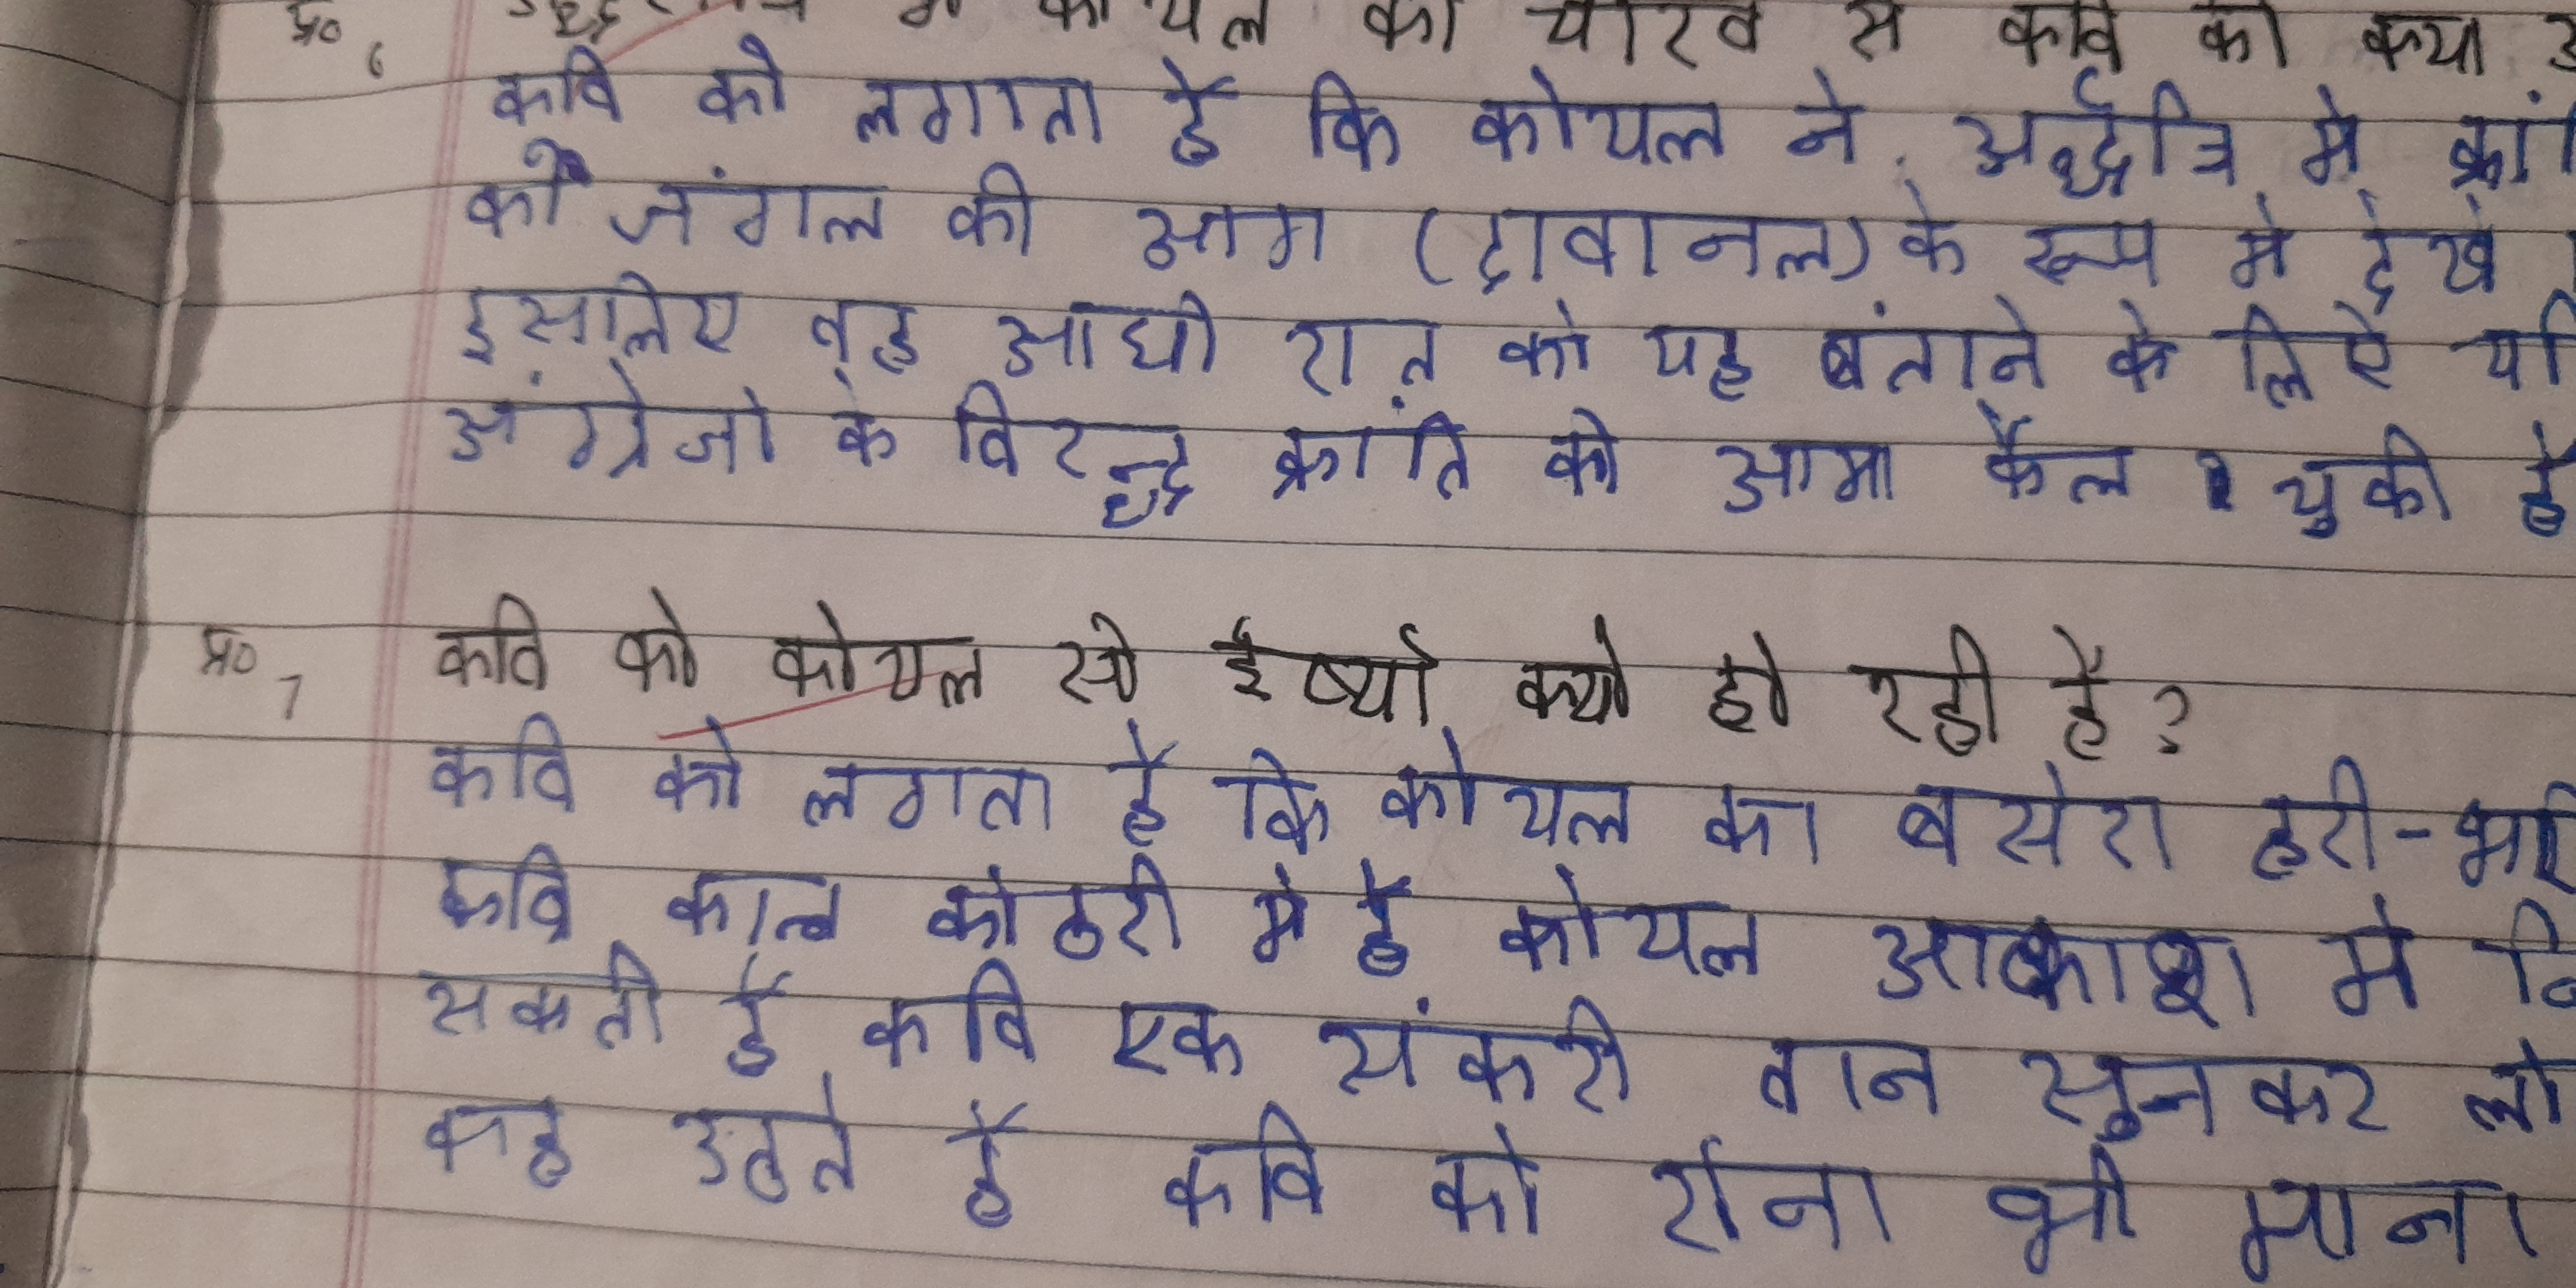 प्र० 6 में कोयल की चीख से कवि को क्या
कवि को लगाता है कि कोयल ने अर्द्धरात्रि में
को जंगल की आग (दावानल) के रूप में देखे
इसलिए वह आधी रात को यह बंताने के लिऐ
अंग्रेजो के विरुद्ध क्रांति की आग फैल चुकी है
प्र० 7 कवि को कोयल से ईर्ष्या क्यो हो रही है?
कवि को लगता है कि कोयल का बसेरा हरी-
कवि काल कोठरी मे है कोयल आकाश में
सकती है कवि एक संकरी तान सुनकर
कह उठते है कवि को रोना भी